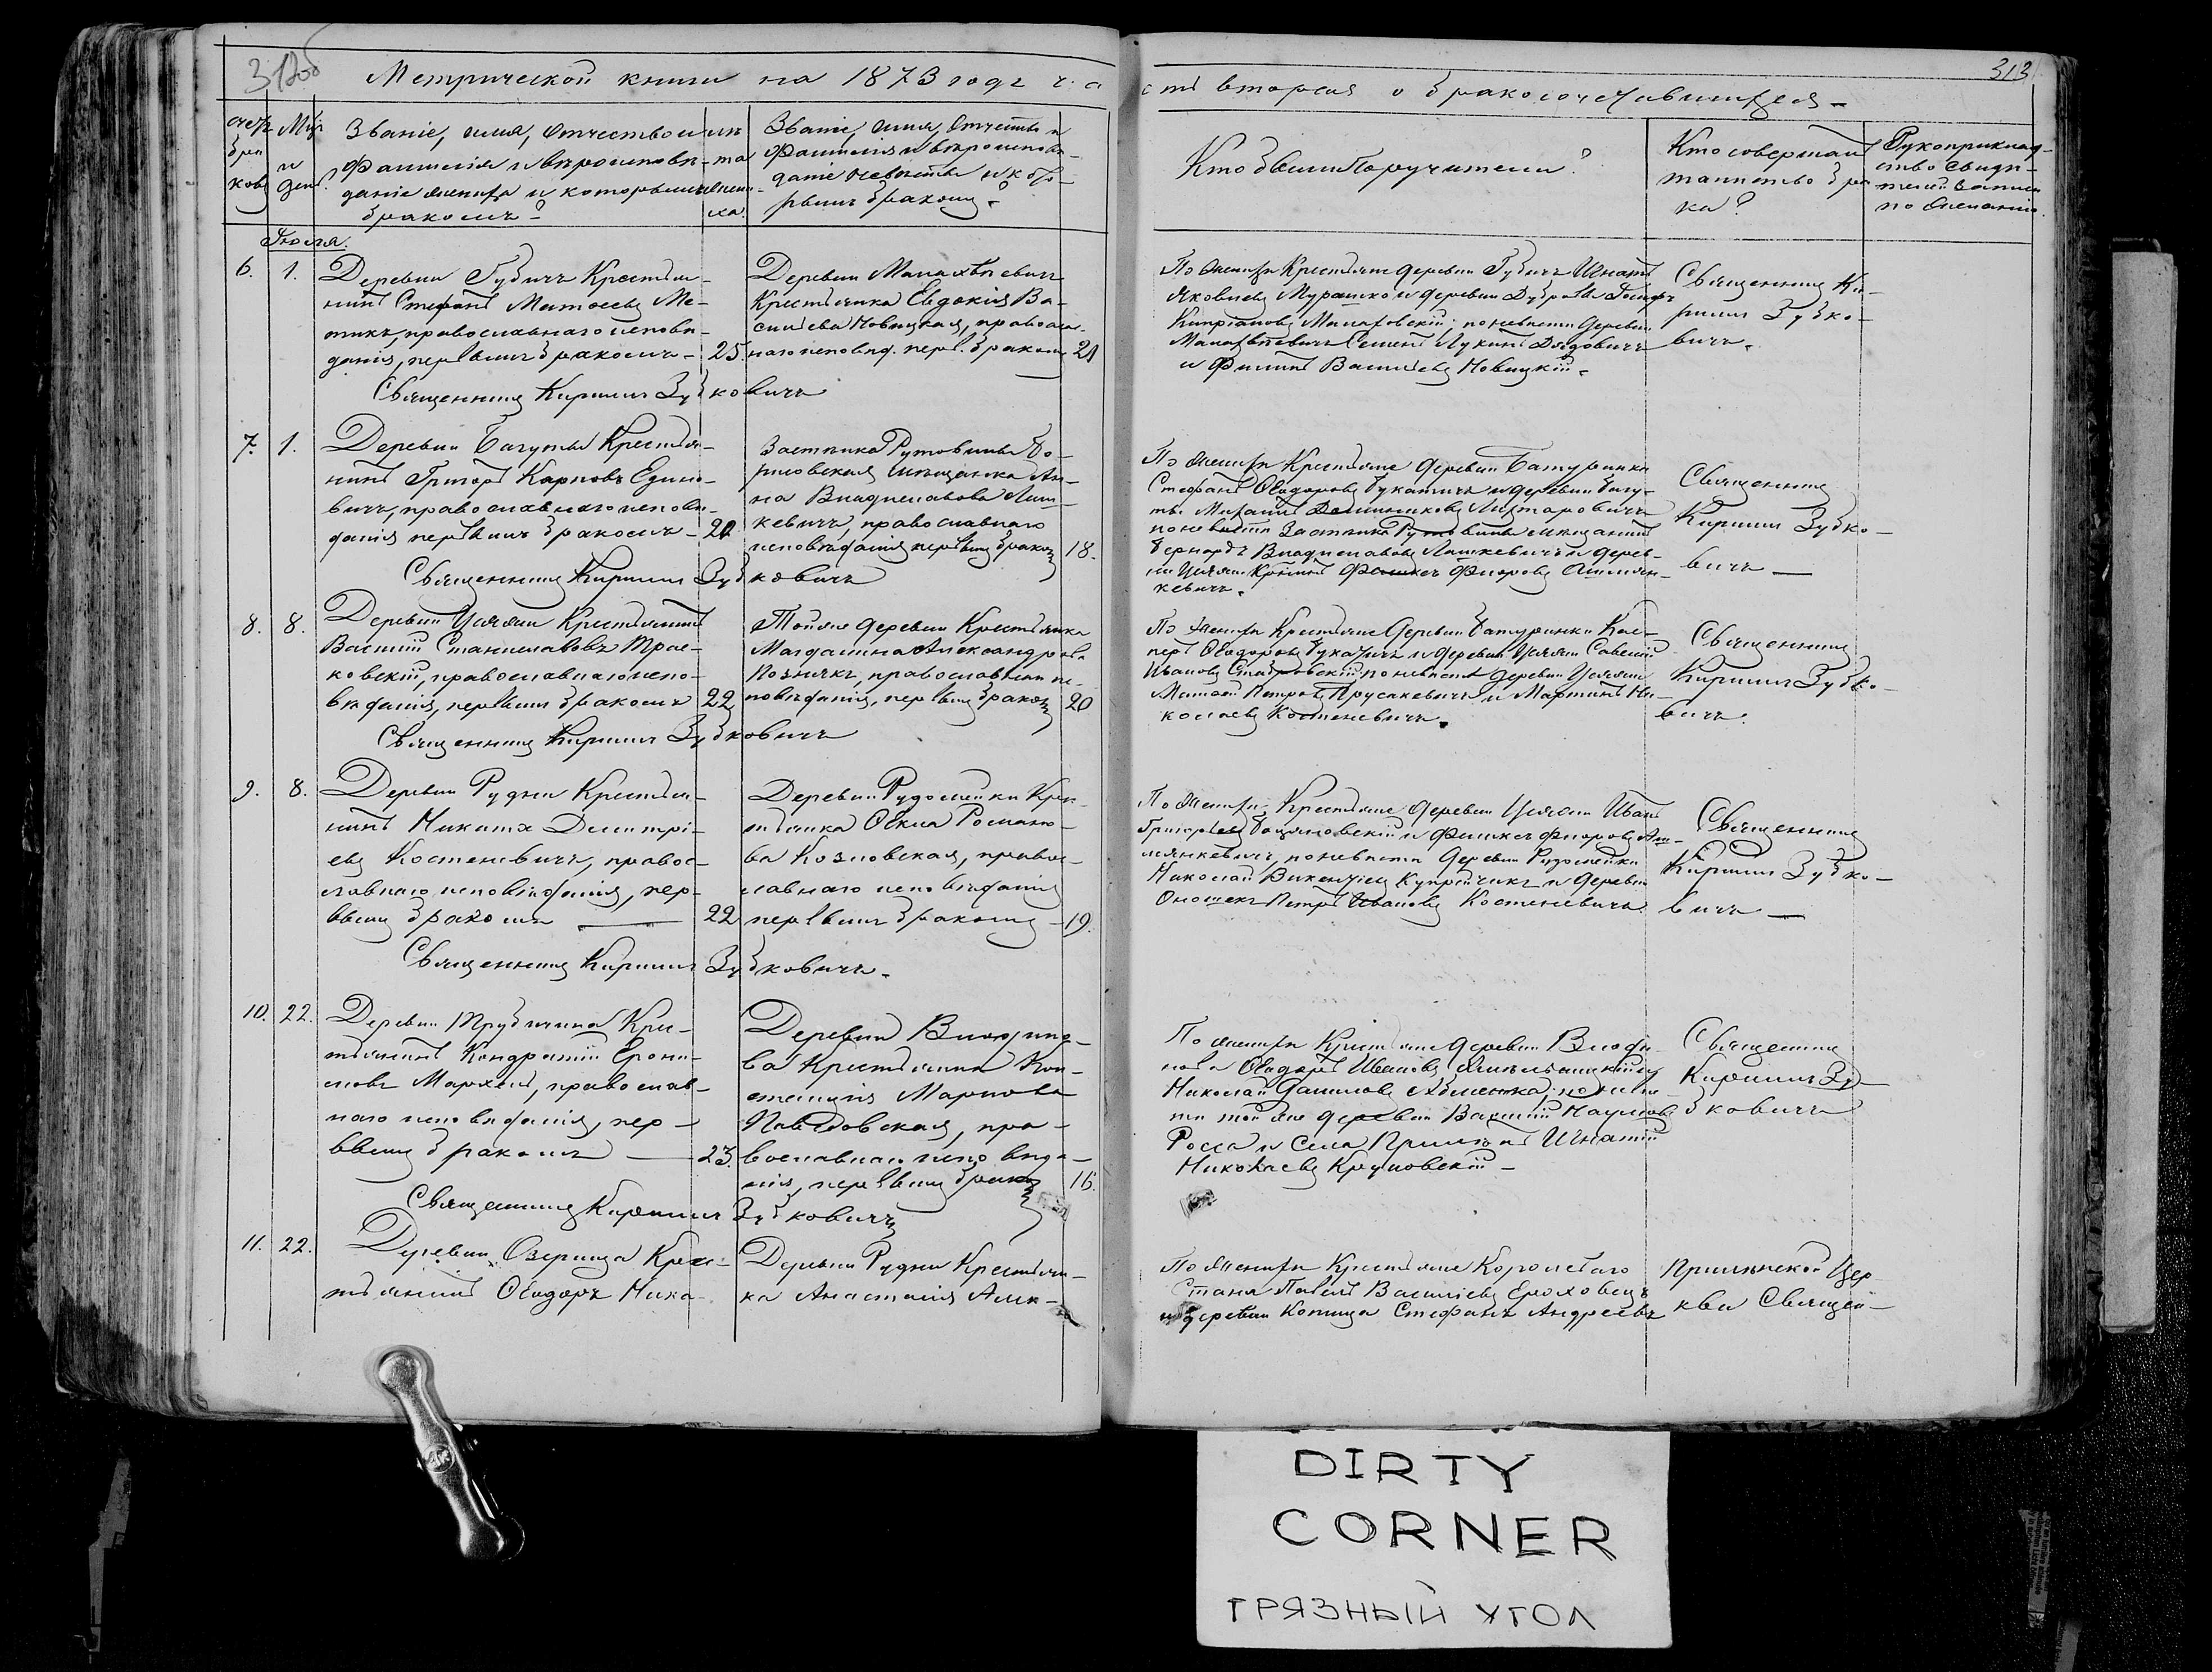 312об
313
Метрической книги на 1873 годъ ча
сть вторая о бракосочетавшихся
Счетъ браковъ
Мѣс. и день
Званіе, имя, отчество и
фамилія и вѣроисповѣ-
даніе жениха и которымъ
бракомъ?
Лѣта жениха
Званіе, имя, отчество и
фамилія и вѣроисповѣ-
даніе невѣсты и кото-
рымъ бракомъ
Кто были Поручители?
Кто совершалъ
таинство бра
ка?
Рукоприклад-
ство свидѣ-
телей записи
по желанію
Іюля.
6. 1.
Деревни Губичъ Крестья-
нинъ Стефанъ Матѳеевъ Ме-
тикъ, православнаго исповѣ-
данія, первымъ бракомъ 25.
Деревни Малахвѣевичъ
Крестьянка Евдокія Ва-
сильева Новицкая, православ-
наго исповѣд. перв. бракомъ 21
По женихѣ Крестьяне деревни Губичъ Игнатъ
Яковлевъ Мурашко и деревни Дубровы Іосифъ
Кипріановъ Малаховскій; по невѣстѣ деревни
Малахвѣевичъ Семенъ Лукинъ Дзѣдовичъ
и Филипъ Васильевъ Новицкій.
Священникъ Ки-
риллъ Зубко-
вичъ.
Священникъ Кириллъ Зубковичъ
7. 1.
Деревни Багуты Крестья-
нинъ Григорій Карповъ Едино-
вичъ, православнаго исповѣ-
данія первымъ бракомъ 20
Застѣнка Рутовины Бо-
рисовская мѣщанка Ан-
на Владиславова Лаш-
кевичъ, православнаго
исповѣданія первымъ бракомъ 18.
По женихѣ Крестьяне деревни Батуринки
Стефанъ Ѳеодоровъ Букатичъ и деревни Багу-
ты Михаилъ Доминиковъ Лихтаровичъ
по невѣстѣ Застѣнка Рутовины мѣщанинъ
Бернардъ Владиславовъ Лашкевичъ и дерев-
ни Уляжи Кр-нинъ Феликсъ Флоровъ Ошмян-
кевичъ.
Священникъ
Кириллъ Зубко-
вичъ
Священникъ Кириллъ Зубковичъ
8. 8.
Деревни Уляжи Крестьянинъ
Василій Станиславовъ Трас-
ковскій, православнаго испо-
вѣданія, первымъ бракомъ 22
Той же деревни Крестьянка
Магдалина Александрова
Познякъ, православнаго ис-
повѣданія, первымъ бракомъ 20
По женихѣ Крестьяне деревни Батуринки Кас-
перъ Ѳеодоровъ Букатичъ и деревни Уляжи Савелій
Ивановъ Стабровскій; по невѣстѣ деревни Уляжи
Матвей Петровъ Прусакевичъ и Мартинъ Ни-
колаевъ Костеневичъ.
Священникъ
Кириллъ Зубко-
вичъ.
Священникъ Кириллъ Зубковичъ
9. 8.
Деревни Рудни Крестья-
нинъ Никита Димитрі-
евъ Костеневичъ, правос-
лавнаго исповѣданія, пер-
вымъ бракомъ 22
Деревни Рудомейки Крес-
тьянка Ѳекла Романо-
ва Козловская, правос-
лавнаго исповѣданія
первымъ бракомъ 19.
По женихѣ Крестьяне деревни Уляжи Иванъ
Григорьевъ и Феликсъ Флоровъ Ош-
мянкевичъ, по невѣстѣ деревни Рудомейки
Николай Викентіевъ Купрейчикъ и деревни
Оношекъ Петръ Ивановъ Костеневичъ.
Священникъ
Кириллъ Зубко-
вичъ
Священникъ Кириллъ Зубковичъ.
10. 22.
Деревни Трубичина Крес-
тьянинъ Кондратій Ерони-
мовъ Мархель, православ-
наго исповѣданія, пер-
вымъ бракомъ 23.
Деревни Влодино-
ва Крестьянка Кон-
станція Маркова
Павловская, пра-
вославнаго исповѣда-
нія, первымъ бракомъ 16.
По женихѣ Крестьяне деревни Влоди-
нова Ѳеодоръ Ивановъ
Николай Даниловъ Абметка; по невѣс-
тѣ той же деревни Василій Наумовъ
Росса и села Прилѣпъ Игнатій
Николаевъ Круповскій
Священникъ
Кириллъ Зу-
бковичъ
Священникъ Кириллъ Зубковичъ
11. 22.
Деревни Озерища Крес-
тьянинъ Ѳеодоръ Ника-
Деревни Рудни Крестьян-
ка Анастасія Алек-
По женихѣ Крестьяне Королеваго
Стана Павелъ Васильевъ Ероховецъ
и деревни Копища Стефанъ Андреевъ
Прилѣпской Цер-
кви Священ-
DIRTY
CORNER
ГРЯЗНЫЙ УГОЛ